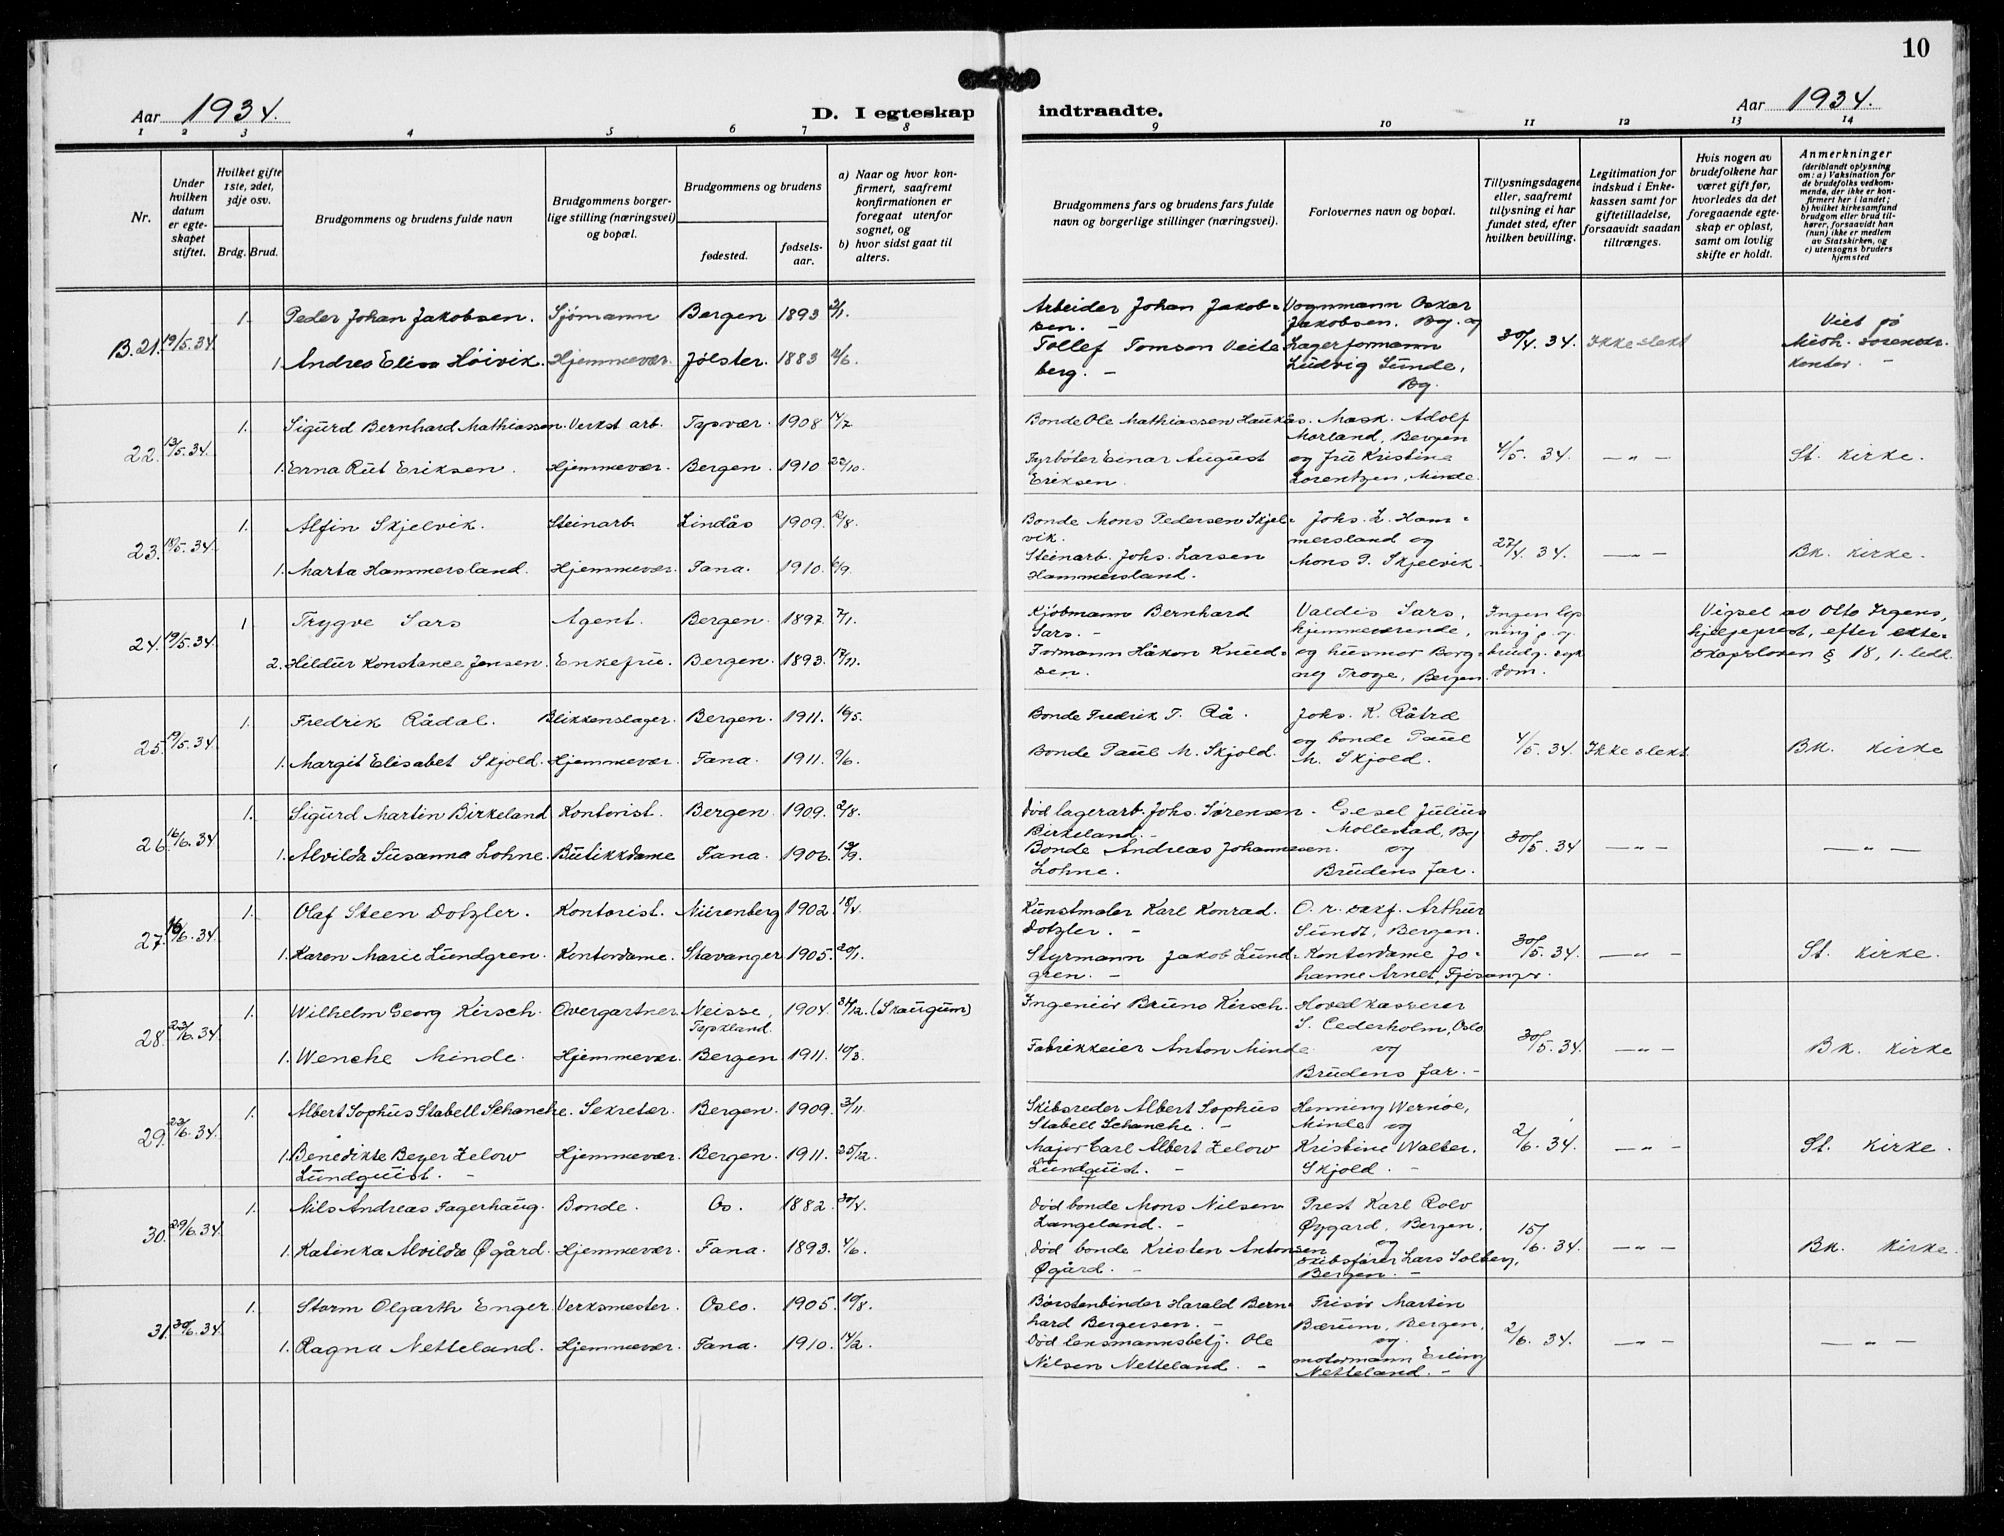 10
Aar 1934.
D. I egteskap indtraadte.
Aar 1934.
1 2 3 4 5 6 7 8 9 10 11 12 13 14
Nr.
Under hvilken datum er egteskapet stiftet.
Hvilket gifte 1ste, 2det, 3dje osv.
Brdg. Brud.
Brudgommens og brudens fulde navn
Brudgommens borgerlige stilling (næringsvei) og bopæl.
Brudgommens og brudens
fødested.
fødselsaar.
a) Naar og hvor konfirmert, saafremt konfirmationen er foregaat utenfor sognet, og
b) hvor sidst gaat til alters.
Brudgommens fars og brudens fars fulde navn og borgerlige stillinger (næringsvei).
Forlovernes navn og bopæl.
Tillysningsdagene eller, saafremt tillysning ei har fundet sted, efter hvilken bevilling.
Legitimation for indskud i Enkekassen samt for giftetilladelse, forsaavidt saadan tiltrænges.
Hvis nogen av brudefolkene har været gift før, hvorledes da det foregaaende egteskap er opløst, samt om lovlig skifte er holdt.
Anmerkninger (deriblandt oplysning om: a) Vaksination for de brudefolks vedkommende, der ikke er konfirmert her i landet; b) hvilket kirkesamfund brudgom eller brud tilhører, forsaavidt han (hun) ikke er medlem av Statskirken, og c) utensogns bruders hjemsted
B. 21. 19/5.34. 1. Peder Johan Jakobsen. Sjømann Bergen 1893
1. Andrea Elisa Höivik. Hjemmevær. Jølster. 1883
Arbeider Johan Jakobsen. -
Tollef Tomsen Veiteberg. -
Vognmann Oskar Jakobsen. Bg. og
Lagerformann Ludvig Sunde, Bg.
30/4. 34. Ikke slekt
Viet på kontor. -
22. 13/5.34. 1. Sigurd Bernhard Mathiassen. Verkst arb. Tysvær. 1908 14/7.
1. Erna Rut Eriksen. Hjemmevær. Bergen. 1910 22/10.
Bonde Ole Mathiassen Haukås.
Fyrbøter Einar August Eriksen.
Mask. Adolf Morland, Bergen
og fru Kristine Lorentzen, Minde.
4/5. 34. — „ — St. kirke.
23. 18/5.34. 1. Alfin Skjelvik. Steinarb. Lindås 1909.
1. Marta Hammersland. Hjemmevær. Fana. 1910. 6/9.
Bonde Mons Pedersen Skjelvik.
Steinarb. Johs. Larsen Hammersland.
Johs. L. Hammersland og
Mons P. Skjelvik.
27/4. 34. — „ — Bk. kirke.
24. 19/5.34. 1. Trygve Sars Agent. Bergen. 1897.
2. Hildur Konstance Jensen. Enkefru. Bergen. 1893.
Kjøbmann Bernhard Sars. -
Formann Håkon Knudsen.
Valdis Sars, hjemmeværende,
og husmor Borgny Troye, Bergen.
Ingen lysning p. g. brudg. sykdom.
Vigsel av Otto Irgens, hjelpeprest, efter ekteskapsloven § 18, 1. ledd.
25. 19/5.34. 1. Fredrik Rådal. Blikkenslager. Bergen. 1911.
1. Margit Elisabet Skjold. Hjemmevær. Fana. 1911.
Bonde Fredrik T. Rå.
Bonde Paul M. Skjold.
Johs. K. Råtræ
og bonde Paul M. Skjold.
4/5. 34. Ikke slekt Bk. kirke
26. 16/6.34 1. Sigurd Martin Birkeland Kontorist. Bergen. 1909. 2/8.
1. Alvilda Susanna Lohne. Butikkdame Fana. 1906.
Död lagerarb. Johs. Sørensen Birkeland. -
Bonde Andreas Johannessen Lohne.
Gesel Julius Mollestad, Bg
og
Brudens far.
30/5. 34 — „ — — „ —
27. 16/6.34. 1. Olaf Steen Dotzler. Kontorist. Nürenberg 1902. 18/4.
1. Karen Marie Lundgren. Kontordame. Stavanger 1905. 20/1.
Kunstmaler Karl Konrad Dotzler. -
Styrmann Jakob Lundgren. -
O. r. sakf. Arthur Sundt, Bergen.
Kontordame Johanne Arnet, Fjøsanger.
30/5. 34. — „ — St. kirke.
28. 23/6.34 1. Wilhelm Georg Kirsch. Overgartner Neisse, Tyskland. 1904. 31/12. (Skaugum)
1. Wenche Minde. Hjemmevær. Bergen 1911. 10/3.
Ingeniör Bruno Kirsch.
Fabrikkeier Anton Minde
Hovedkasserer S. Cederholm, Oslo
og
Brudens far. -
30/5. 34. — „ — Bk. kirke
29. 23/6.34. 1. Albert Sophus Stabell Schanche. Sekretær. Bergen. 1909. 3/11.
1. Benedikte Beyer Zelow Lundquist. - Hjemmevær. Bergen. 1911. 25/12.
Skibsreder Albert Sophus Stabell Schanche. -
Major Carl Albert Zelow Lundquist. -
Henning Wernøe, Minde og
Kristine Walter, Skjold. -
2/6. 34. — „ — St. kirke.
30. 29/6.34. 1. Nils Andreas Fagerhaug. Bonde. Os. 1882. 30/4.
1. Katinka Alvilda Øgård. Hjemmevær. Fana. 1893. 4/6.
Död bonde Mons Nilsen Langeland. -
Död bonde Kristen Antonsen Øgård. -
Prest Karl Rolv Øygard, Bergen.
og
skibsfører Lars Solberg, Bergen. -
15/6. 34. — „ — Bk. kirke.
31. 30/6.34. 1. Storm Olgarth Enger. Verksmester. Oslo. 1905. 10/8.
1. Ragna Netteland. Hjemmevær. Fana. 1910. 14/2.
Børstenbinder Harald Bernhard Bergersen. -
Död lensmannsbetj. Ole Nilsen Netteland. -
Frisör Martin Bærum, Bergen,
og.
motormann Erling Netteland. -
2/6. 34. — „ — — „ —